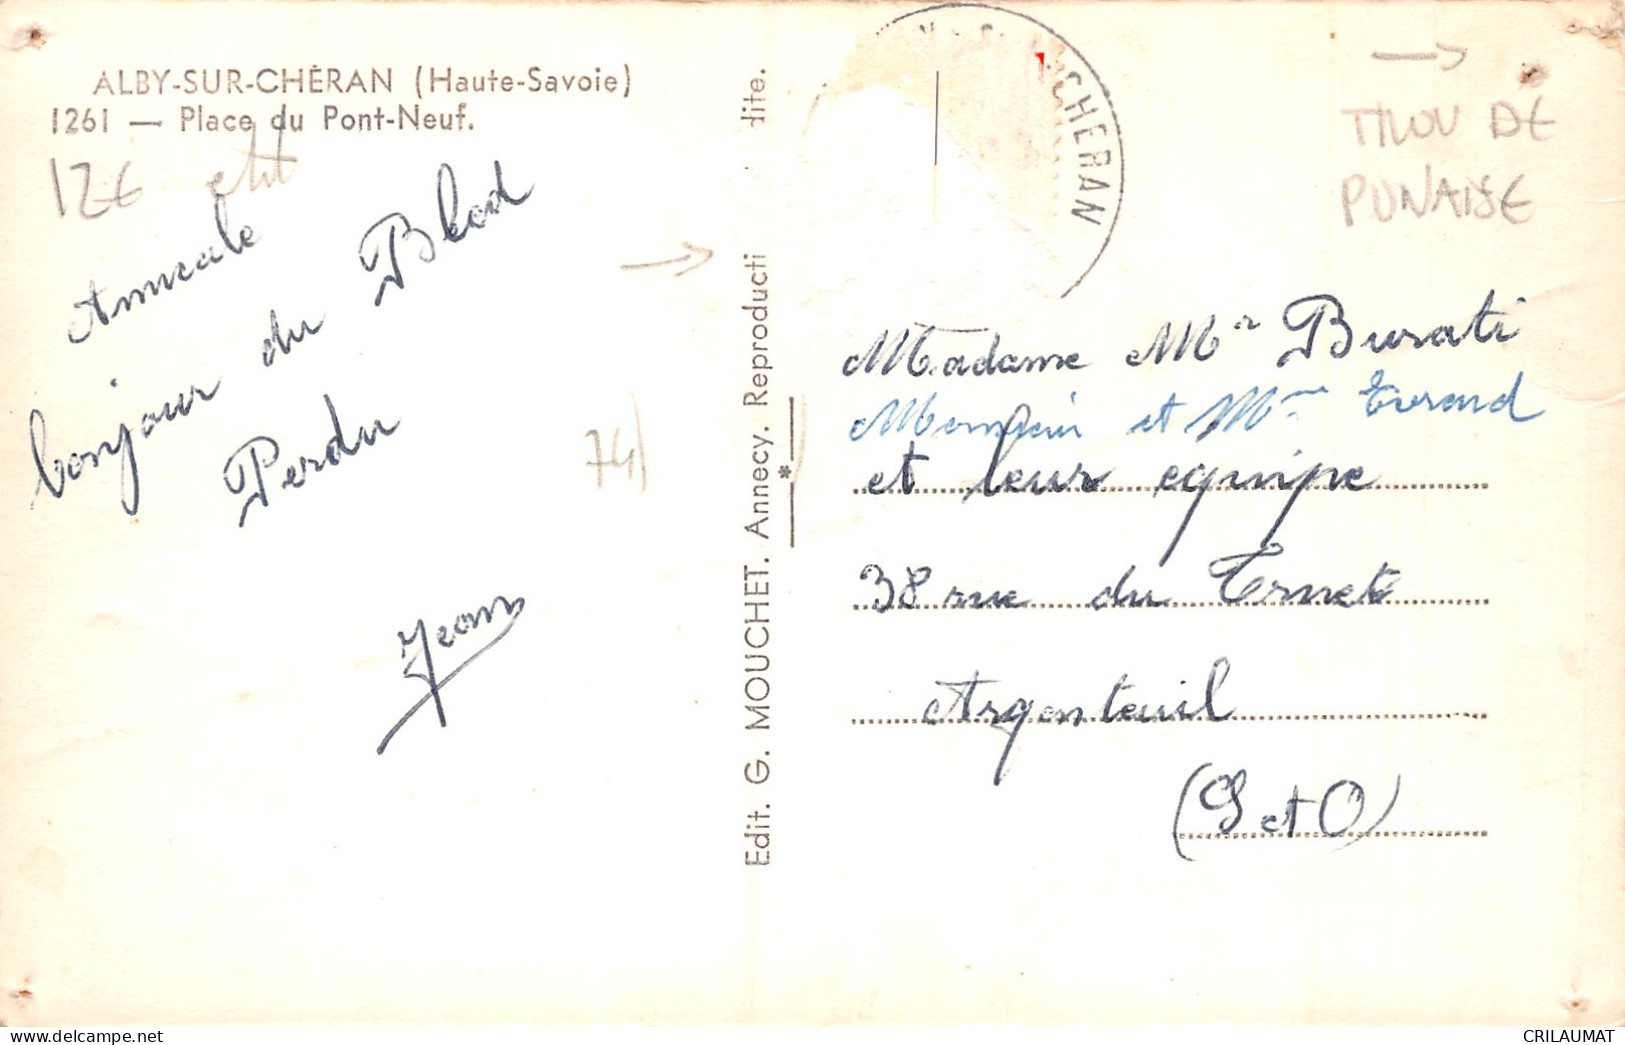 ALBY-SUR-CHÉRAN (Haute-Savoie)
1261 — Place du Pont-Neuf.
12€
Amicale
bonjour du Bled
Perdu
Jean
74)
Edit. G. MOUCHET. Annecy. Reproducti dite.
*
CHERAN
→
TROU DE
PUNAISE
→
Madame Mr Burati
Monsieur et Mme
et leur equipe
38 rue du
Argenteuil
(S et O)
CRILAUMAT